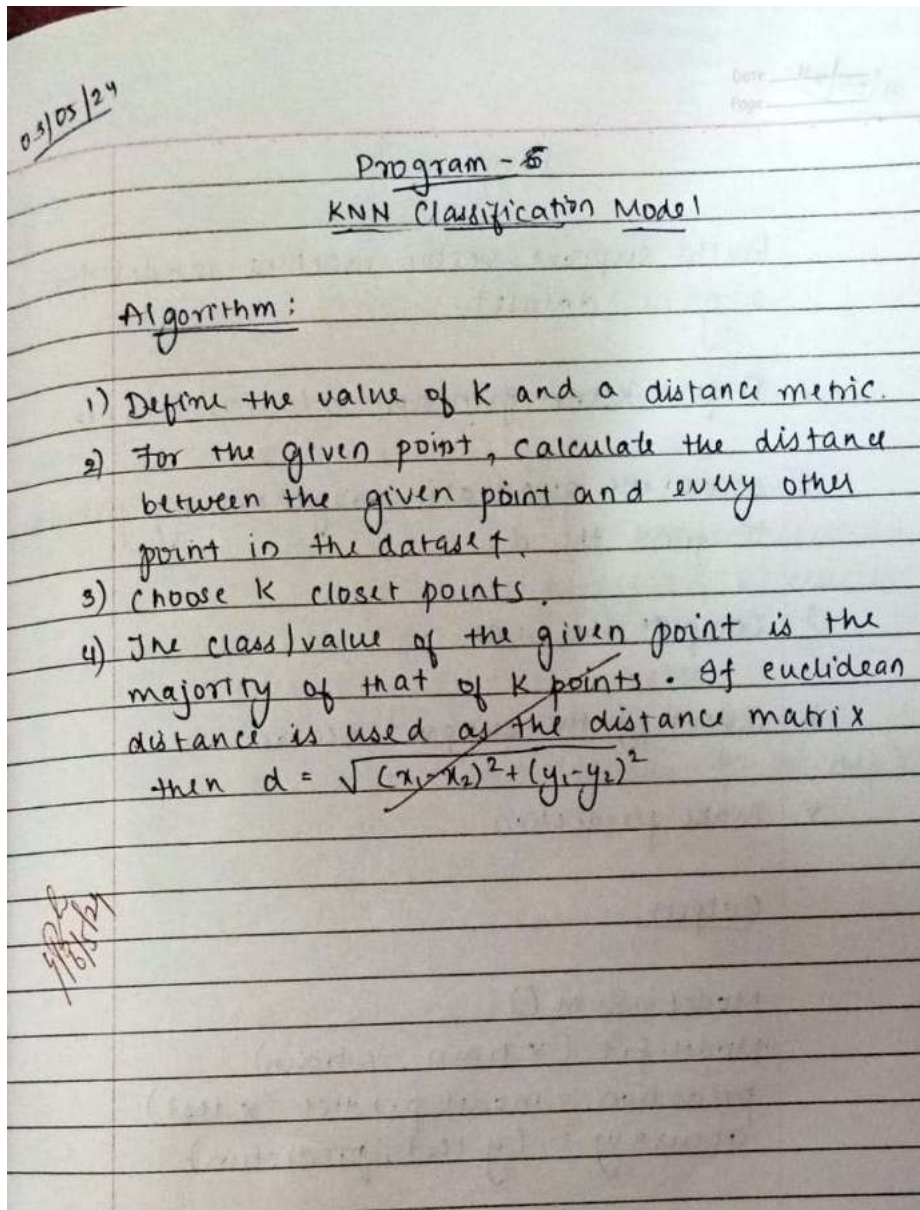 03/05/24
Date
Page
Program - 5
KNN Classification Model
Algorithm :
1) Define the value of K and a distance metric.
2) For the given point, calculate the distance
between the given point and every other
point in the dataset.
3) Choose K closet points.
4) The class/value of the given point is the
majority of that of K points. If euclidean
distance is used as the distance matrix
then d = √(x₁-x₂)²+(y₁-y₂)²